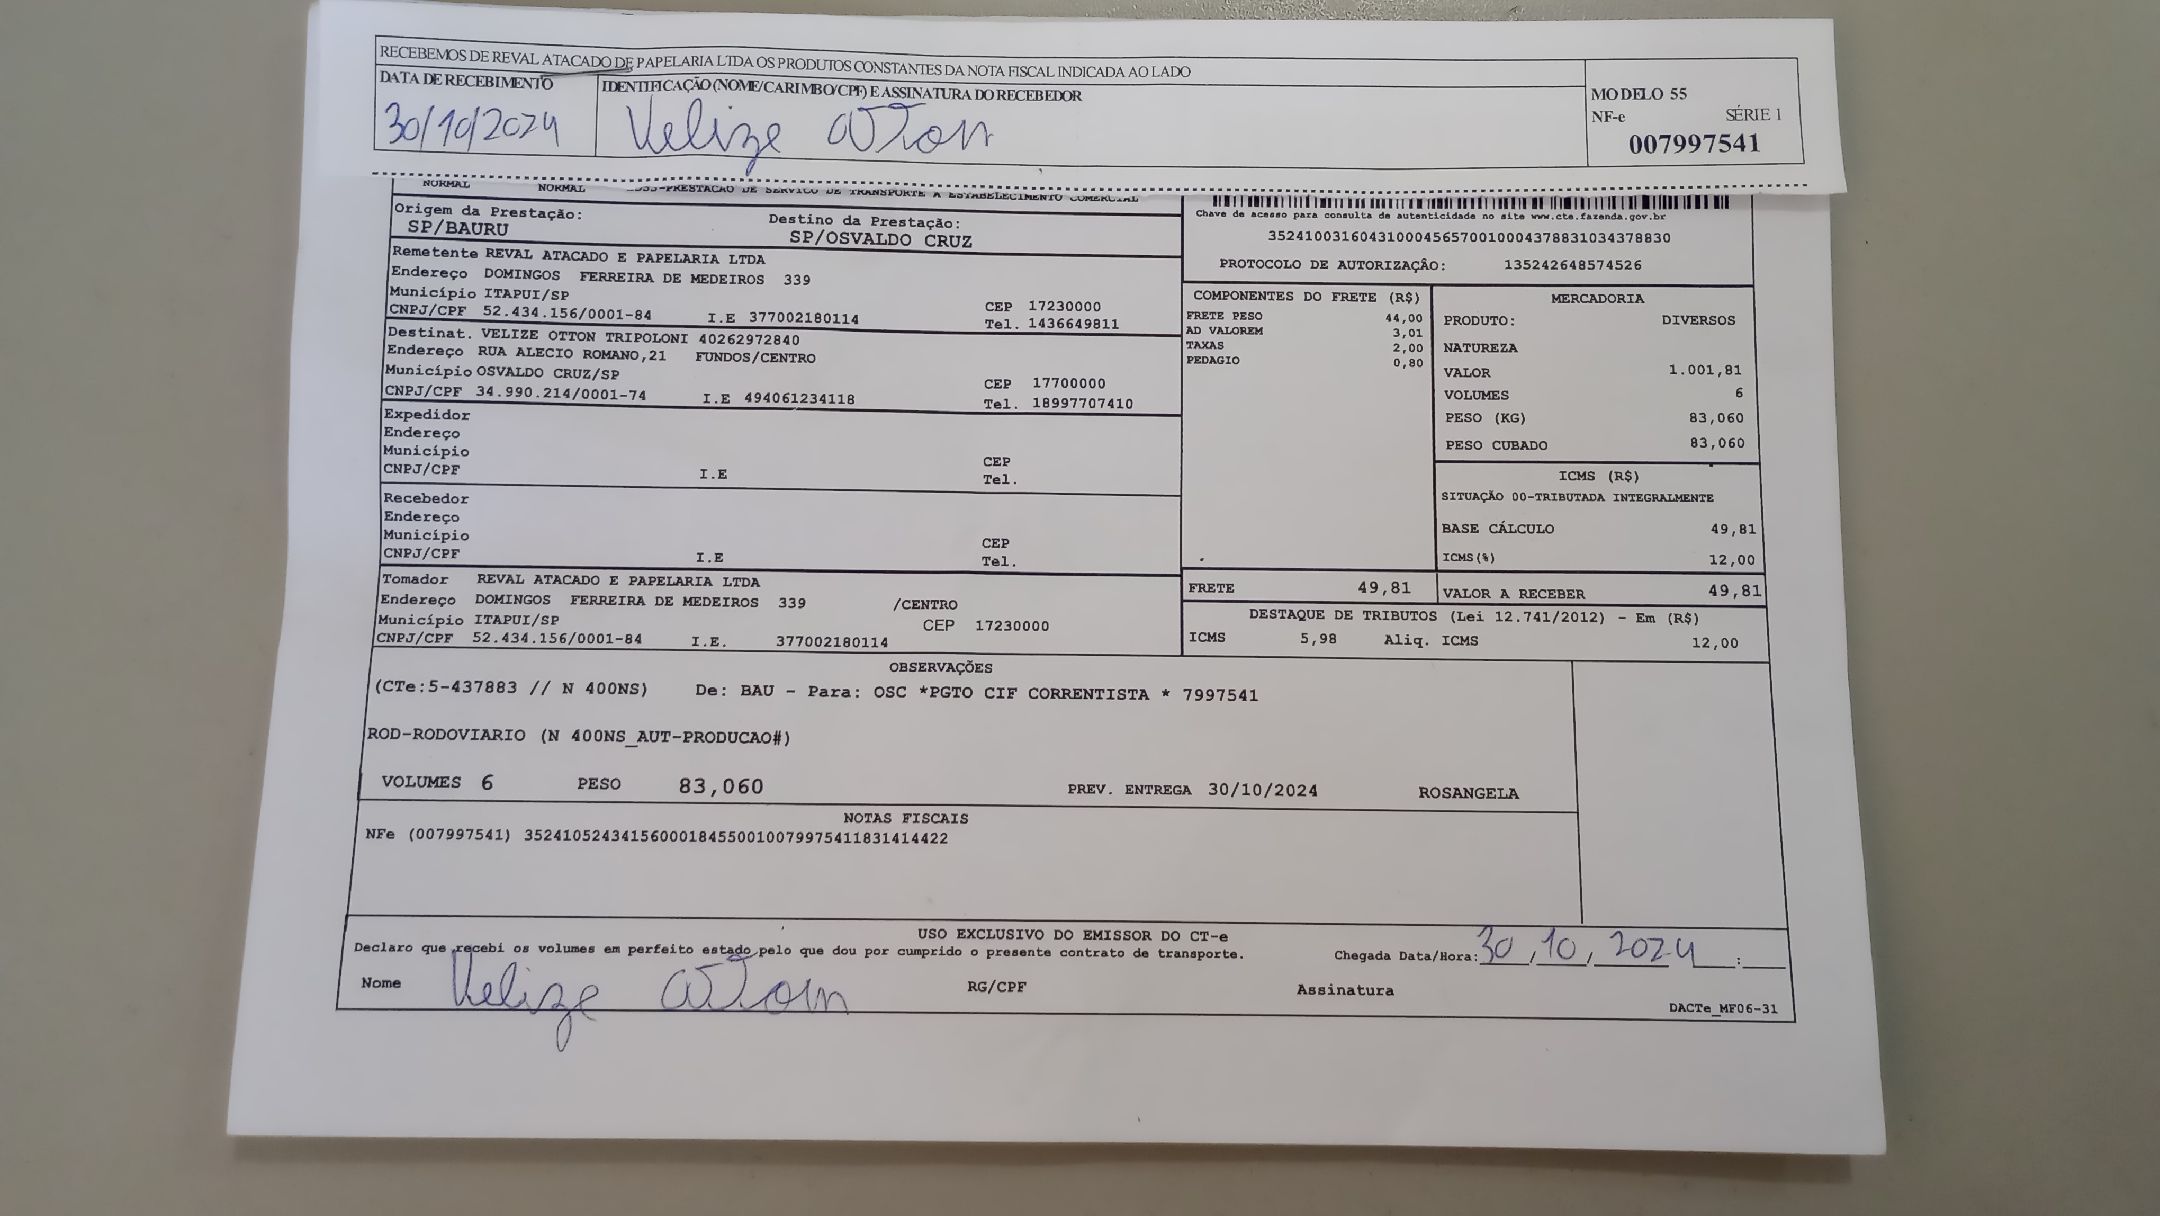 RECEBEMOS DE REVAL ATACADO DE PAPELARIA LTDA OS PRODUTOS CONSTANTES DA NOTA FISCAL INDICADA AO LADO
DATA DE RECEBIMENTO IDENTIFICAÇÃO (NOME/CARIMBO/CPF) E ASSINATURA DO RECEBEDOR
30/10/2024 Velize otton
MODELO 55
NF-e SÉRIE 1
007997541
NORMAL NORMAL PRESTACAO DE SERVICO DE TRANSPORTE A ESTABELECIMENTO COMERCIAL
Origem da Prestação: Destino da Prestação:
SP/BAURU SP/OSVALDO CRUZ
Chave de acesso para consulta de autenticidade no site www.cte.fazenda.gov.br
35241003160431000456570010004378831034378830
PROTOCOLO DE AUTORIZAÇÂO: 135242648574526
Remetente REVAL ATACADO E PAPELARIA LTDA
Endereço DOMINGOS FERREIRA DE MEDEIROS 339
Município ITAPUI/SP CEP 17230000
CNPJ/CPF 52.434.156/0001-84 I.E 377002180114 Tel. 1436649811
Destinat. VELIZE OTTON TRIPOLONI 40262972840
Endereço RUA ALECIO ROMANO,21 FUNDOS/CENTRO
Município OSVALDO CRUZ/SP CEP 17700000
CNPJ/CPF 34.990.214/0001-74 I.E 494061234118 Tel. 18997707410
Expedidor
Endereço
Município CEP
CNPJ/CPF I.E Tel.
Recebedor
Endereço
Município CEP
CNPJ/CPF I.E Tel.
Tomador REVAL ATACADO E PAPELARIA LTDA
Endereço DOMINGOS FERREIRA DE MEDEIROS 339 /CENTRO
Município ITAPUI/SP CEP 17230000
CNPJ/CPF 52.434.156/0001-84 I.E. 377002180114
COMPONENTES DO FRETE (R$)
FRETE PESO 44,00
AD VALOREM 3,01
TAXAS 2,00
PEDAGIO 0,80
MERCADORIA
PRODUTO: DIVERSOS
NATUREZA
VALOR 1.001,81
VOLUMES 6
PESO (KG) 83,060
PESO CUBADO 83,060
ICMS (R$)
SITUAÇÃO 00-TRIBUTADA INTEGRALMENTE
BASE CÁLCULO 49,81
ICMS(%) 12,00
FRETE 49,81 VALOR A RECEBER 49,81
DESTAQUE DE TRIBUTOS (Lei 12.741/2012) - Em (R$)
ICMS 5,98 Aliq. ICMS 12,00
OBSERVAÇÕES
(CTe:5-437883 // N 400NS) De: BAU - Para: OSC *PGTO CIF CORRENTISTA * 7997541
ROD-RODOVIARIO (N 400NS_AUT-PRODUCAO#)
VOLUMES 6 PESO 83,060 PREV. ENTREGA 30/10/2024 ROSANGELA
NOTAS FISCAIS
NFe (007997541) 35241052434156000184550010079975411831414422
USO EXCLUSIVO DO EMISSOR DO CT-e
Declaro que recebi os volumes em perfeito estado pelo que dou por cumprido o presente contrato de transporte. Chegada Data/Hora: 30,10,2024 :
Nome Velize otton RG/CPF Assinatura
DACTe_MF06-31